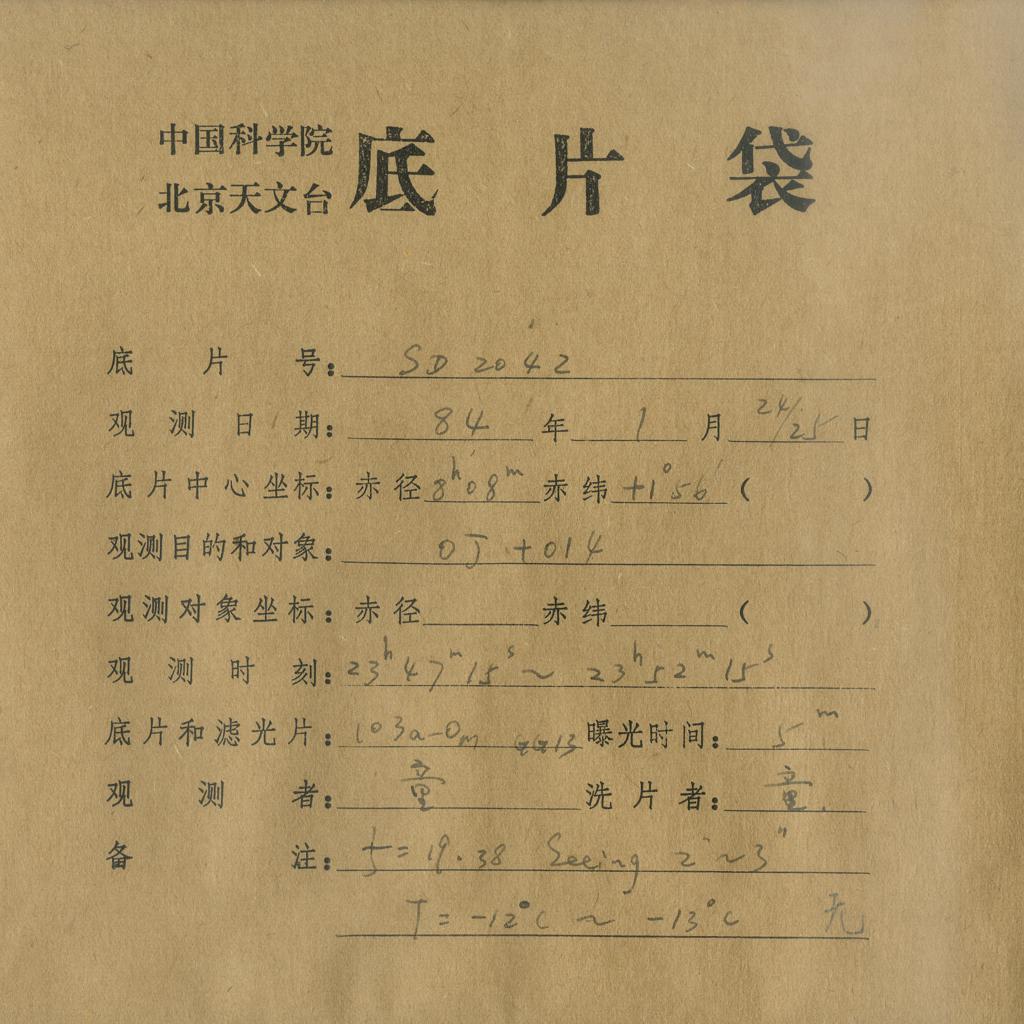 中国科学院
北京天文台
底片袋
底片号：SD 2042
观测日期：84年1月24/25日
底片中心坐标：赤径8h08m赤纬+1°56'（ ）
观测目的和对象：OJ+014
观测对象坐标：赤径 赤纬 （ ）
观测时刻：23h47m15s～23h52m15s
底片和滤光片：103a-Om GG13 曝光时间：5m
观测者：童 洗片者：童.
备注：f=19.38 Seeing 2"～3"
T=-12°C～-13°C 无